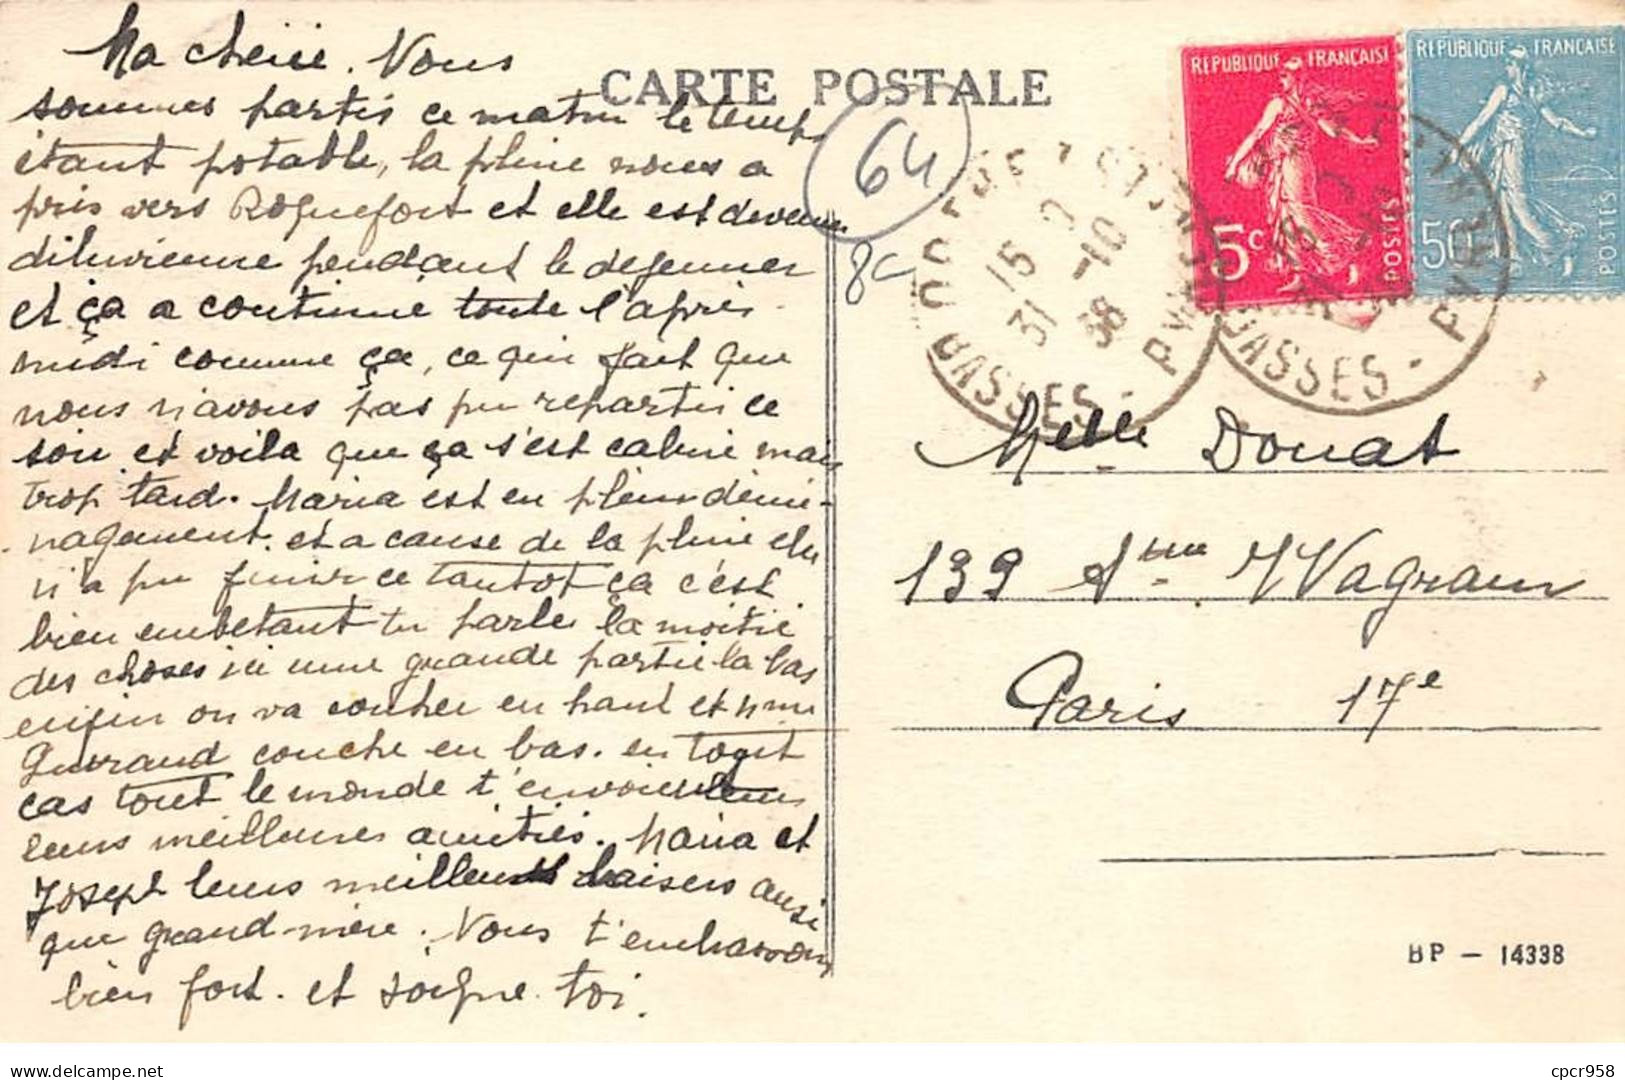 Ma cherie. Nous
sommes partis ce matin le temps
étant potable, la pluie nous a
pris vers Roquefort et elle est devenue
diluvienne pendant le dejeuner
et ça a continue toute l'après
midi comme ça, ce qui fait que
nous n'avons pas pu repartir ce
soir et voila que ça s'est calmé mais
trop tard. Maria est en plein démé-
nagement. et a cause de la pluie elle
n'a pu finir ce tantot ça c'est
bien embetant tu parles la moitié
des choses ici une grande partie la bas
enfin on va coucher en haut et Mme
Guiraud couche en bas. en tout
cas tout le monde t'envoie
leurs meilleures amitiés. Maria et
Joseph leurs meilleurs baisers ainsi
que grand-mère. Nous t'embrassons
bien fort. et soigne-toi.
CARTE POSTALE
64
8c
REPUBLIQUE FRANÇAISE
5c
POSTES
REPUBLIQUE FRANÇAISE
50c
POSTES
15
31 -10
38
BASSES - PYR
BASSES - PYR
Melle Douat
139 Ave Wagram
Paris 17e
BP - 14338
cpcr958